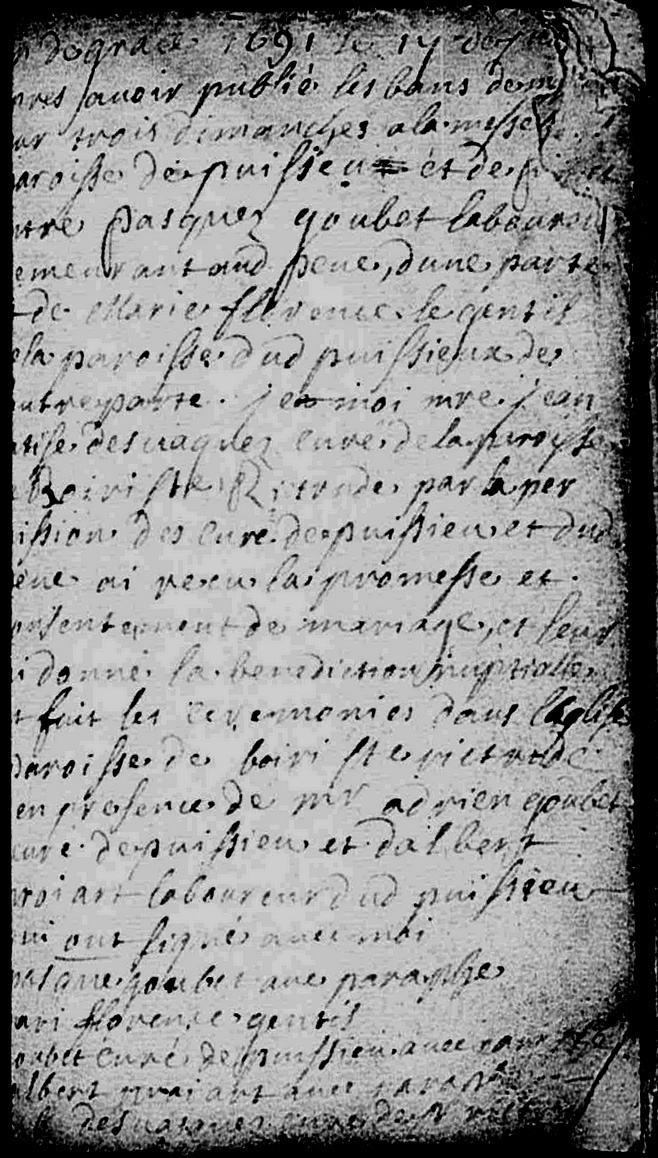 de grace 1691 le 17 de
avoir publié les bans de
trois dimanches a la messe
paroisse de puissieu et de
pasquez goubet laboureur
demeurant aud peue, dune parte
de Marie florence le gentil
de la paroisse dud puissieux de
autre parte. je moi mre jean
desuaquez curé de la paroysse
Boiri ste Rictrude par la per
ission des curé de puissieu et dud
ai recu la promesse et
onsentement de mariage, et leur
i donné la benediction nuptialle
t fait les ceremonies dans leglise
paroisse de boiri ste rictrude
en presence de mr adrien goubet
curé de puissieu et dalbert
roiart laboureur dud puissieu
ui ont signé auec moi
pasque goubet auec paraphe
ari florence gentil
oubet curé de puissieu auec paraphe
albert auec paraphe
desuaquez curé de